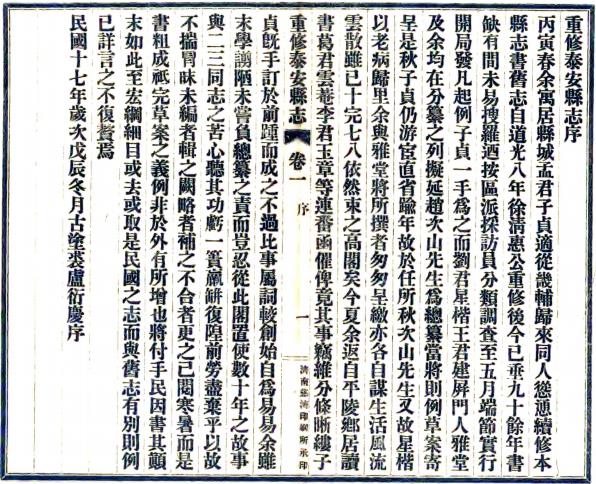 重修泰安縣志序
丙寅春余寓居縣城孟君子貞適從畿輔歸來同人慫恿續修本
縣志書舊志自道光八年徐清惠公重修後今已垂九十餘年書
缺有間未易搜羅迺按區派採訪員分類調查至五月端節實行
開局發凡起例子貞一手為之而劉君星楷王君建屏門人雅堂
及余均在分纂之列擬延趙次山先生為總纂當將則例草案寄
呈是秋子貞仍游宦直省踰年故於任所秋次山先生又故星楷
以老病歸里余與雅堂將所撰者匆匆呈繳亦各自謀生活風流
雲散雖已十完七八依然束之高閣矣今夏余返自平陵鄉居讀
書葛君雲菴李君玉章等連番函催俾竟其事竊維分條晰縷子
重修泰安縣志
卷一
序
一
濟南慈濟印刷所承印
貞既手訂於前踵而成之不過比事屬詞較創始自為易易余雖
末學謭陋未嘗負總纂之責而豈忍從此閣置使數十年之故事
與二三同志之苦心聽其功虧一簣羸缾復隍前勞盡棄乎以故
不揣冒昧未編者輯之闕略者補之不合者更之已閱寒暑而是
書粗成祗完草案之義例非於外有所增也將付手民因書其顛
末如此至宏綱細目或去或取是民國之志而與舊志有別則例
已詳言之不復贅焉
民國十七年歲次戊辰冬月古塗裘盧衍慶序